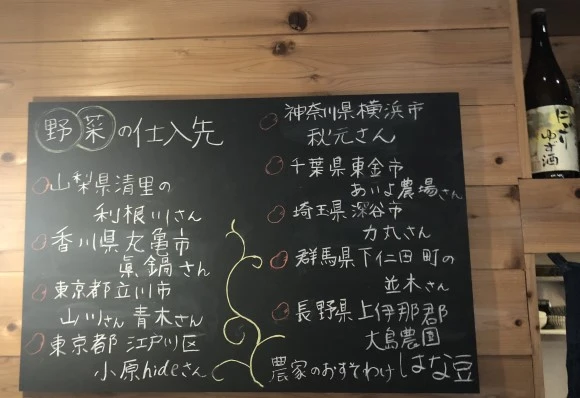 野菜の仕入先
山梨県清里の
利根川さん
香川県丸亀市
眞鍋さん
東京都立川市
山川さん 青木さん
東京都 江戸川区
小原hideさん
神奈川県横浜市
秋元さん
千葉県東金市
あいよ農場さん
埼玉県深谷市
力丸さん
群馬県下仁田町の
並木さん
長野県上伊那郡
大島農園
農家のおすそわけ はな豆
にごり
ゆず酒